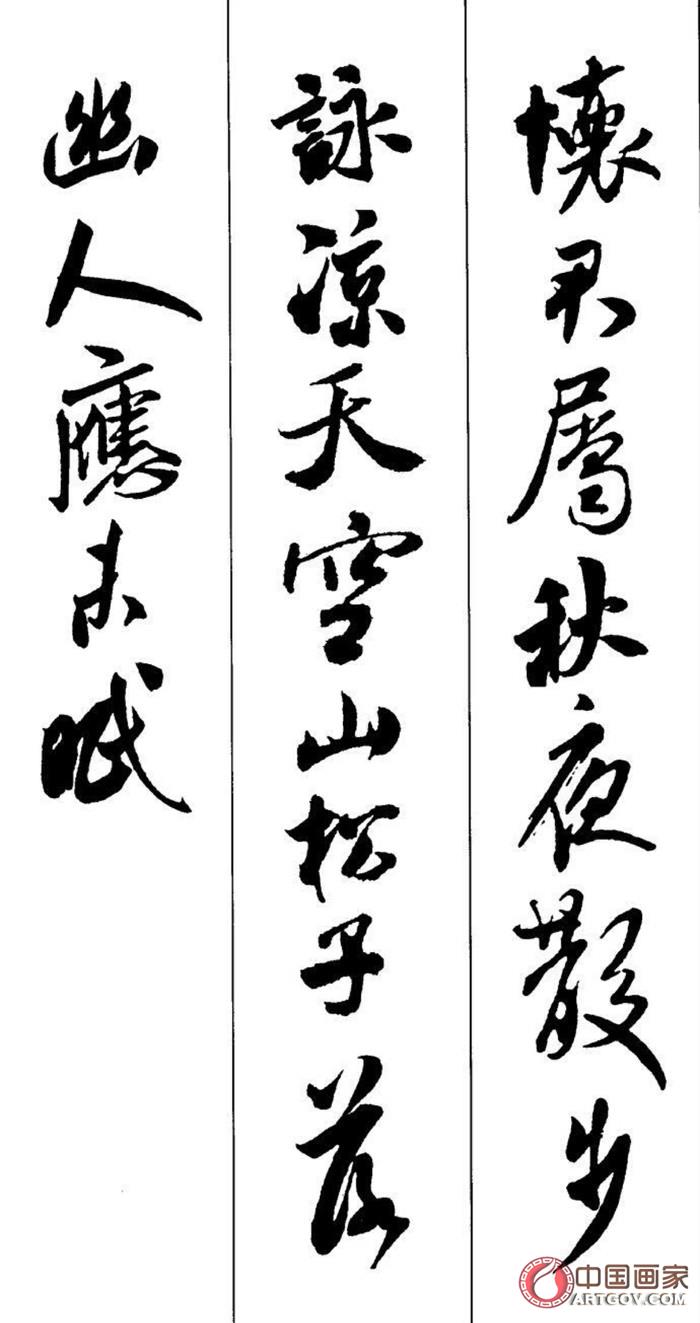 懷君屬秋夜散步
詠涼天空山松子落
幽人應未眠
中国画家
ARTGOV.COM